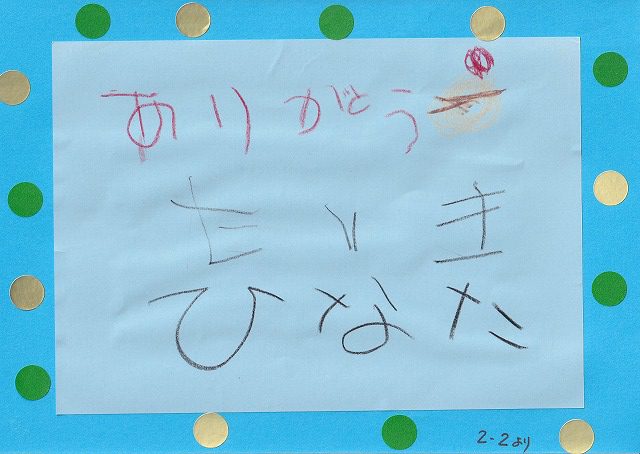 ありがとう
たいき
ひなた
2-2より